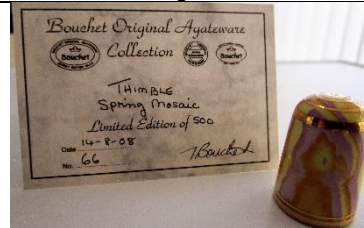 Bouchet Original Agateware
Collection
Bouchet
Bouchet
THIMBLE
Spring Mosaic
Limited Edition of 500
Date 14-8-08
No. 66